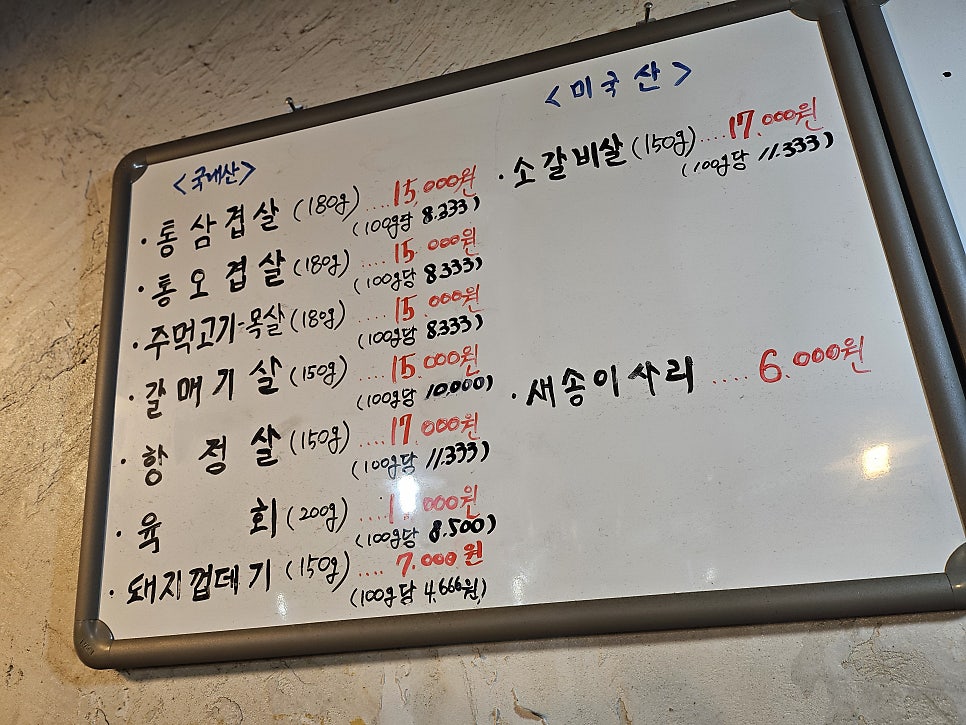 <국내산>
· 통삼겹살 (180g) .... 15,000원
(100g당 8.333)
· 통오겹살 (180g) .... 15.000원
(100g당 8.333)
· 주먹고기-목살 (180g) .... 15.000원
(100g당 8.333)
· 갈매기살 (150g) .... 15.000원
(100g당 10.000)
· 항정살 (150g) .... 17.000원
(100g당 11.333)
· 육회 (200g) ....
(100g당 8.500)
· 돼지껍데기 (150g) .... 7.000원
(100g당 4.666원)
<미국산>
· 소갈비살 (150g) .... 17.000원
(100g당 11.333)
· 새송이사리 .... 6.000원